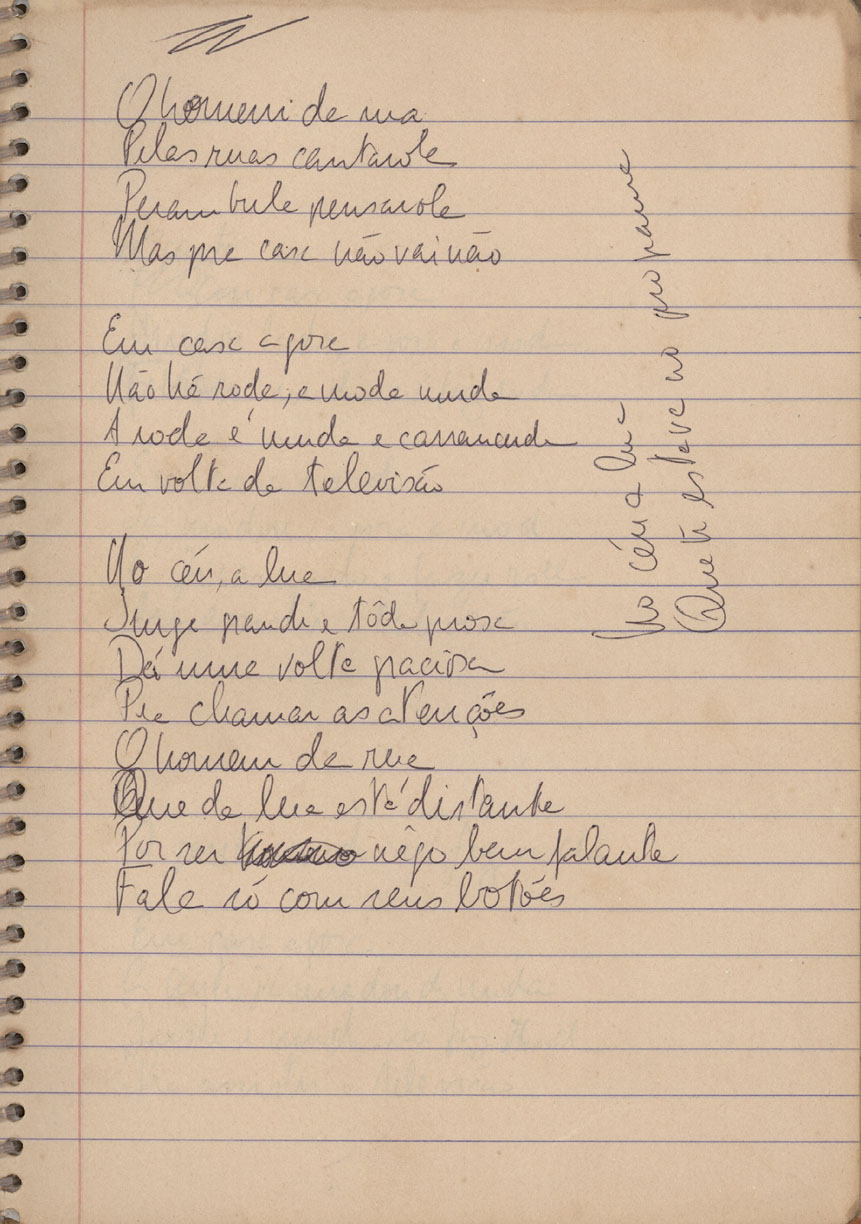 O homem da rua
Pelas ruas cantarola
Perambula pensarola
Mas pra casa não vai não
Em casa agora
Não há roda, a moda muda
A roda é muda e carrancuda
Em volta da televisão
No céu, a lua
Surge grande e tôda prosa
Dá uma volta graciosa
Pra chamar as atenções
O homem da rua
Que da lua está distante
Por ser nêgo bem falante
Fala só com seus botões
No céu a lua
Que ñ estava no programa